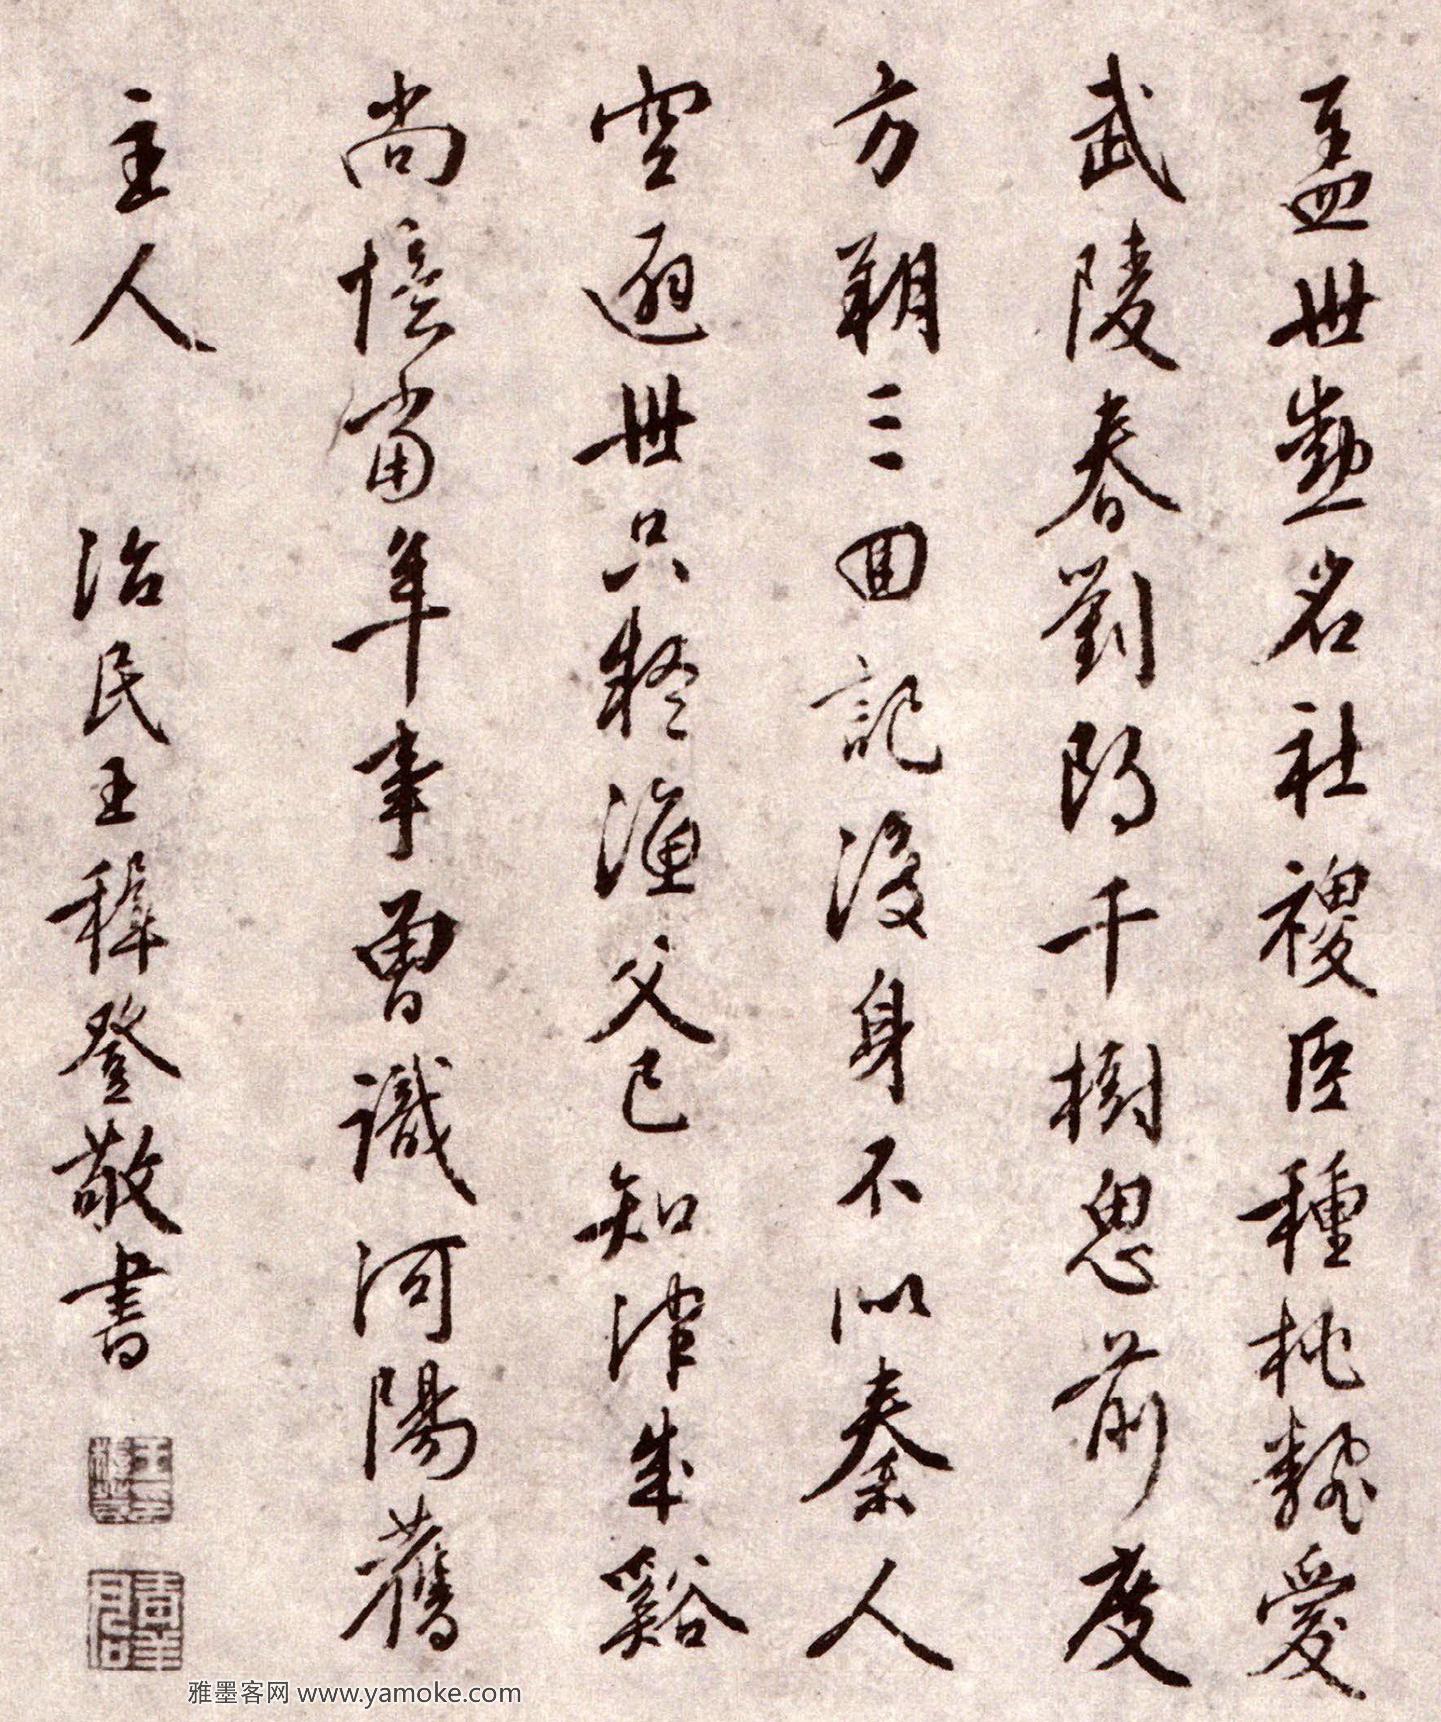 盖世勲名社稷臣種桃飜愛
武陵春劉郎千樹思前度
方朔三回記後身不似秦人
空避世只疑漁父已知津成谿
尚憶當年事曾識河陽舊
主人 治民王穉登敬書
雅墨客网 www.yamoke.com